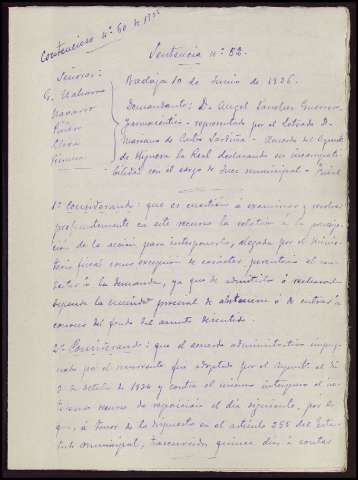 Contencioso nº 60 de 1935
Sentencia nº 52.
Señores:
Navarro
Piñero
Oliva
Badajoz 10 de Junio de 1936.
Demandante: D. Angel Sanchez Guerrero
farmacéutico - representado por el Letrado D.
Mariano de Castro Sardiña - Acuerdo del Ayunt.
de Higuera la Real declarando su incompati-
bilidad con el cargo de Juez municipal - Fiscal
1º Considerando: que es cuestión a examinar y resolver
preferentemente en este recurso la relativa a la prescrip-
ción de la acción para interponerlo, alegada por el Minis-
terio fiscal como excepción de carácter perentorio al con-
testar a la demanda, ya que de admitirla o rechazarla
depende la necesidad procesal de abstenerse o de entrar a
conocer del fondo del asunto discutido.
2º Considerando: que el acuerdo administrativo impug-
nado por el recurrente fue adoptado por el Ayunt. el día
de octubre de 1934 y contra el mismo interpuso el
recurso de reposición el día siguiente, por lo
que, a tenor de lo dispuesto en el artículo 255 del Esta-
tuto Municipal, transcurridos quince días a contar